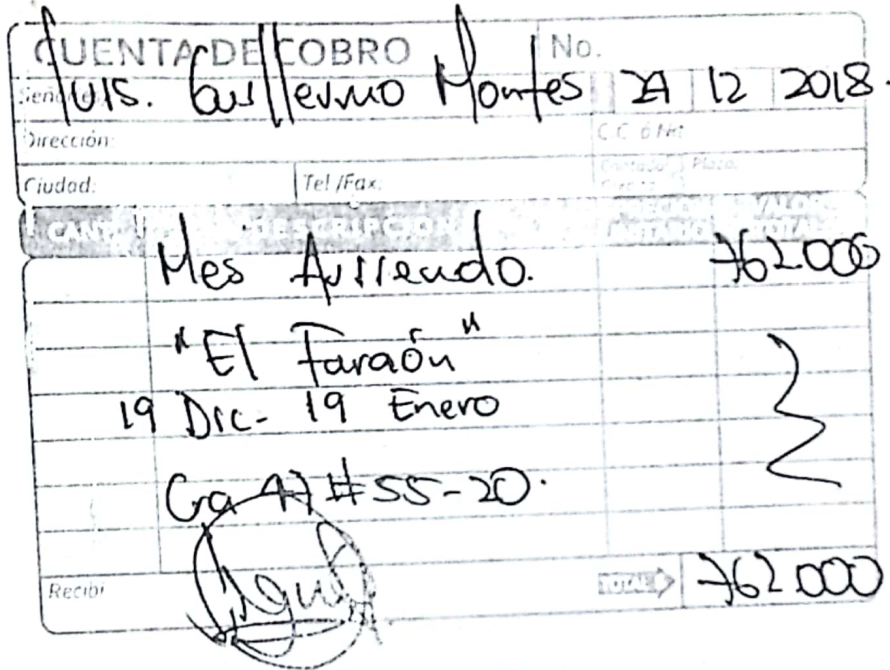 CUENTA DE COBRO No.
Señor Luis. Guillermo Montes 21 12 2018.
Dirección: C.C. ó Nit
Ciudad: Tel /Fax: Plazo:
CANT. DESCRIPCION VALOR TOTAL
Mes Arriendo. 762000
"El Faraón"
19 Dic- 19 Enero
Cra 47 #55-20.
Recibí TOTAL 762000